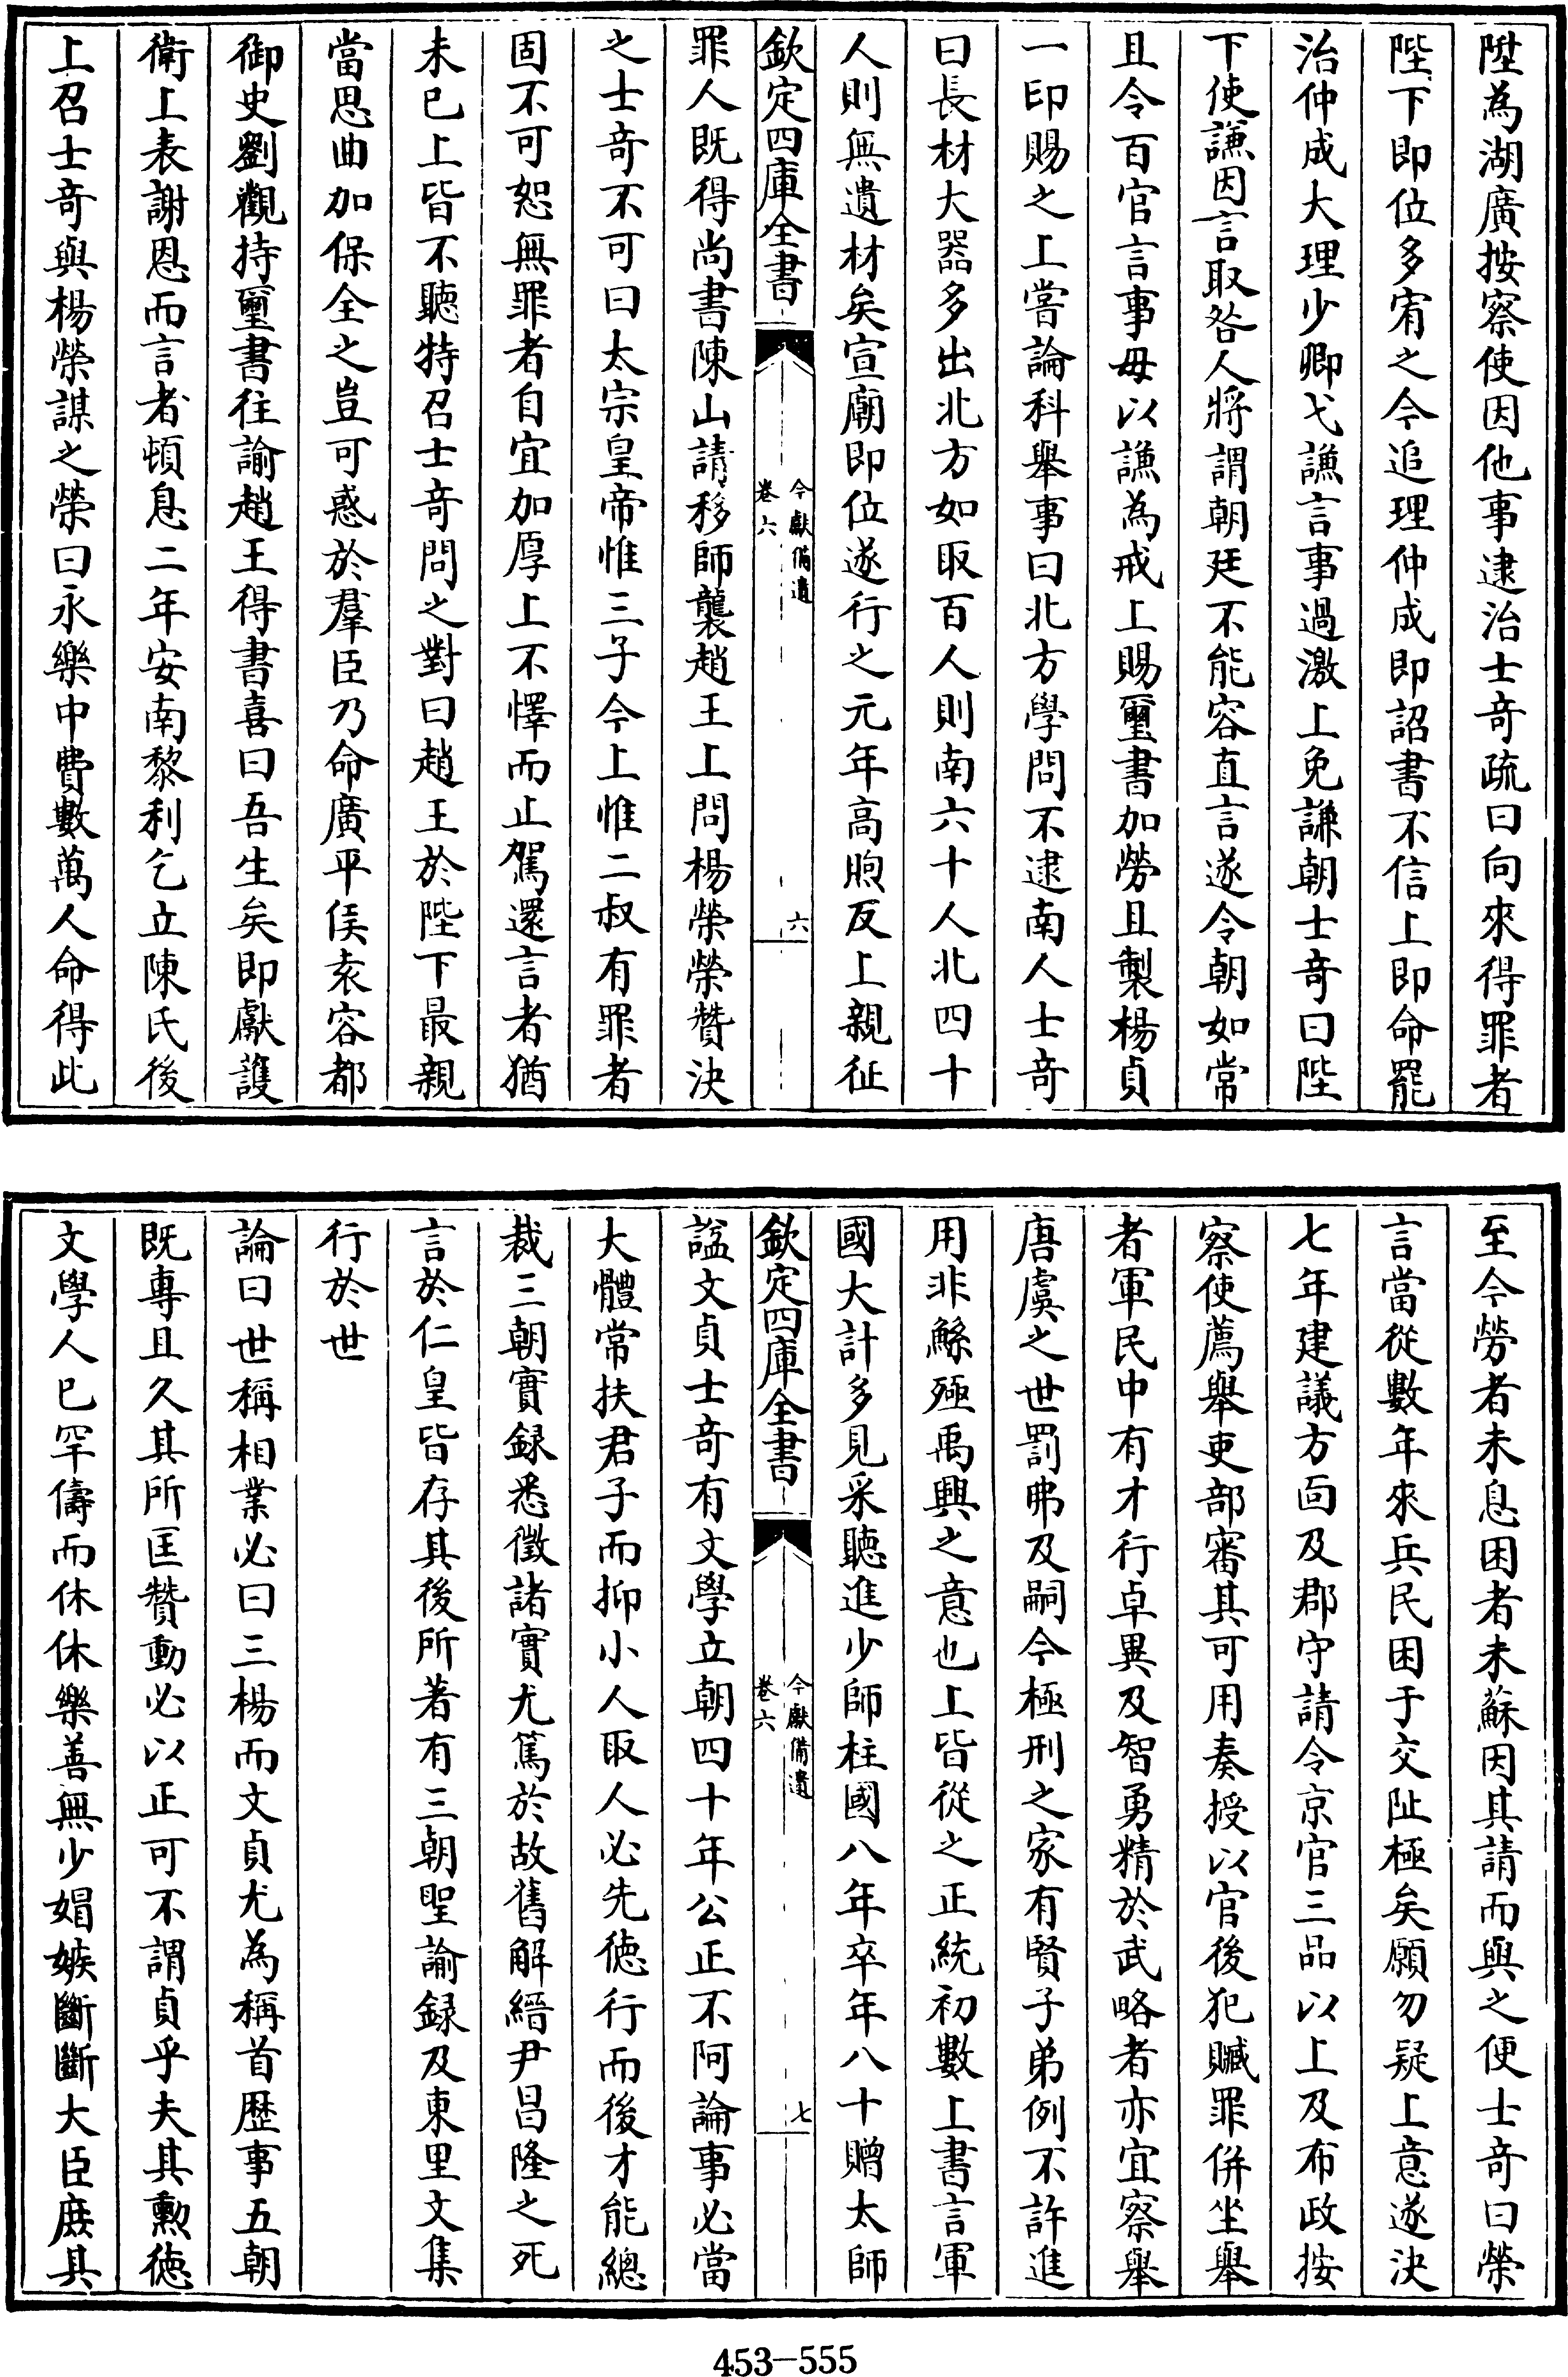 陞為湖廣按察使因他事逮治士奇疏曰向來得罪者
陛下即位多宥之今追理仲成即詔書不信上即命罷
治仲成大理少卿弋謙言事過激上免謙朝士奇曰陛
下使謙因言取咎人將謂朝廷不能容直言遂令朝如常
且令百官言事毋以謙為戒上賜璽書加勞且製楊貞
一印賜之上嘗論科舉事曰北方學問不逮南人士奇
曰長材大器多出北方如取百人則南六十人北四十
人則無遺材矣宣廟即位遂行之元年高煦反上親征
欽定四庫全書
今獻備遺
卷六
六
罪人既得尚書陳山請移師襲趙王上問楊榮榮贊決
之士奇不可曰太宗皇帝惟三子今上惟二叔有罪者
固不可恕無罪者自宜加厚上不懌而止駕還言者猶
未已上皆不聽特召士奇問之對曰趙王於陛下最親
當思曲加保全之豈可惑於羣臣乃命廣平侯袁容都
御史劉觀持璽書往諭趙王得書喜曰吾生矣即獻護
衛上表謝恩而言者頓息二年安南黎利乞立陳氏後
上召士奇與楊榮謀之榮曰永樂中費數萬人命得此
至今勞者未息困者未蘇因其請而與之便士奇曰榮
言當從數年來兵民困于交阯極矣願勿疑上意遂決
七年建議方面及郡守請令京官三品以上及布政按
察使薦舉吏部審其可用奏授以官後犯贓罪併坐舉
者軍民中有才行卓異及智勇精於武略者亦宜察舉
唐虞之世罰弗及嗣今極刑之家有賢子弟例不許進
用非鯀殛禹興之意也上皆從之正統初數上書言軍
國大計多見采聽進少師柱國八年卒年八十贈太師
欽定四庫全書
今獻備遺
卷六
七
諡文貞士奇有文學立朝四十年公正不阿論事必當
大體常扶君子而抑小人取人必先徳行而後才能總
裁三朝實録悉徵諸實尤篤於故舊解縉尹昌隆之死
言於仁皇皆存其後所著有三朝聖諭録及東里文集
行於世
論曰世稱相業必曰三楊而文貞尤為稱首歷事五朝
既專且久其所匡贊動必以正可不謂貞乎夫其勲徳
文學人已罕儔而休休樂善無少媢嫉斷斷大臣庶具
453—555